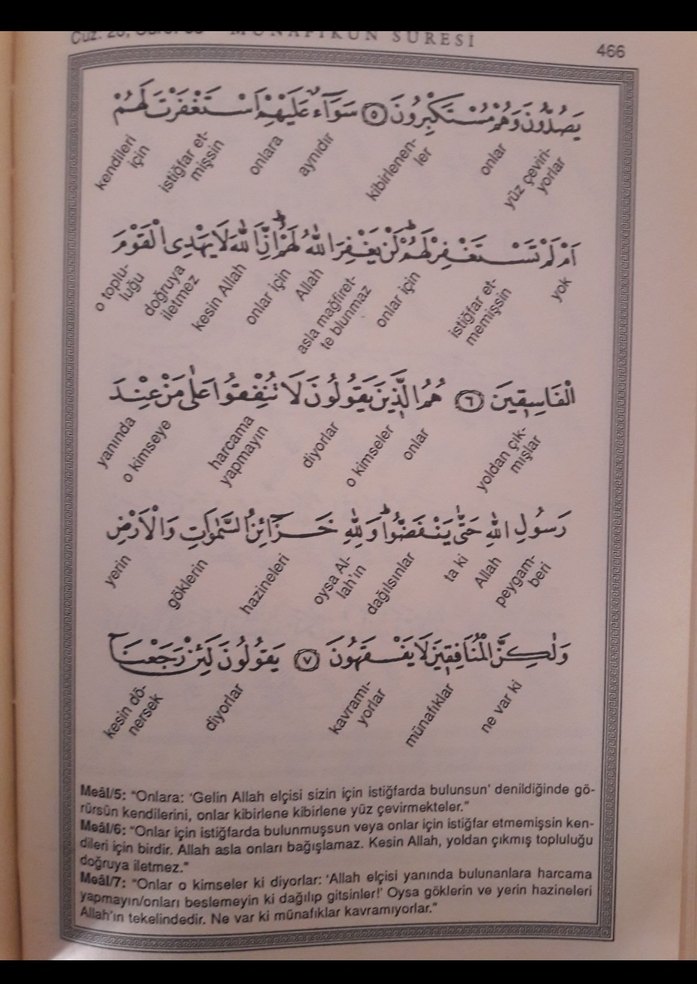 Cüz: 28, Sûre: 63 - MÜNAFİKÛN SÛRESİ
466
يَصُدُّونَ وَهُمْ مُسْتَكْبِرُونَ ﴿٥﴾ سَوَٓاءٌ عَلَيْهِمْ اَسْتَغْفَرْتَ لَهُمْ
yüz çeviri-
yorlar
onlar
kibirlenen-
ler
aynıdır
onlara
istiğfar et-
mişsin
kendileri
için
اَمْ لَمْ تَسْتَغْفِرْ لَهُمْۜ لَنْ يَغْفِرَ اللّٰهُ لَهُمْۜ اِنَّ اللّٰهَ لَا يَهْدِى الْقَوْمَ
yok
istiğfar et-
memişsin
onlar için
asla mağfiret-
te blunmaz
Allah
onlar için
kesin Allah
doğruya
iletmez
o toplu-
luğu
الْفَاسِقٖينَ ﴿٦﴾ هُمُ الَّذٖينَ يَقُولُونَ لَا تُنْفِقُوا عَلٰى مَنْ عِنْدَ
yoldan çık-
mışlar
onlar
o kimseler
diyorlar
harcama
yapmayın
o kimseye
yanında
رَسُولِ اللّٰهِ حَتّٰى يَنْفَضُّواۜ وَلِلّٰهِ خَزَٓائِنُ السَّمٰوَاتِ وَالْاَرْضِ
peygam-
beri
Allah
ta ki
dağılsınlar
oysa Al-
lah'ın
hazineleri
göklerin
yerin
وَلٰكِنَّ الْمُنَافِقٖينَ لَا يَفْقَهُونَ ﴿٧﴾ يَقُولُونَ لَئِنْ رَجَعْنَٓا
ne var ki
münafıklar
kavramı-
yorlar
diyorlar
kesin dö-
nersek
Meâl/5: "Onlara: 'Gelin Allah elçisi sizin için istiğfarda bulunsun' denildiğinde gö-
rürsün kendilerini, onlar kibirlene kibirlene yüz çevirmekteler."
Meâl/6: "Onlar için istiğfarda bulunmuşsun veya onlar için istiğfar etmemişsin ken-
dileri için birdir. Allah asla onları bağışlamaz. Kesin Allah, yoldan çıkmış topluluğu
doğruya iletmez."
Meâl/7: "Onlar o kimseler ki diyorlar: 'Allah elçisi yanında bulunanlara harcama
yapmayın/onları beslemeyin ki dağılıp gitsinler!' Oysa göklerin ve yerin hazineleri
Allah'ın tekelindedir. Ne var ki münafıklar kavramıyorlar."